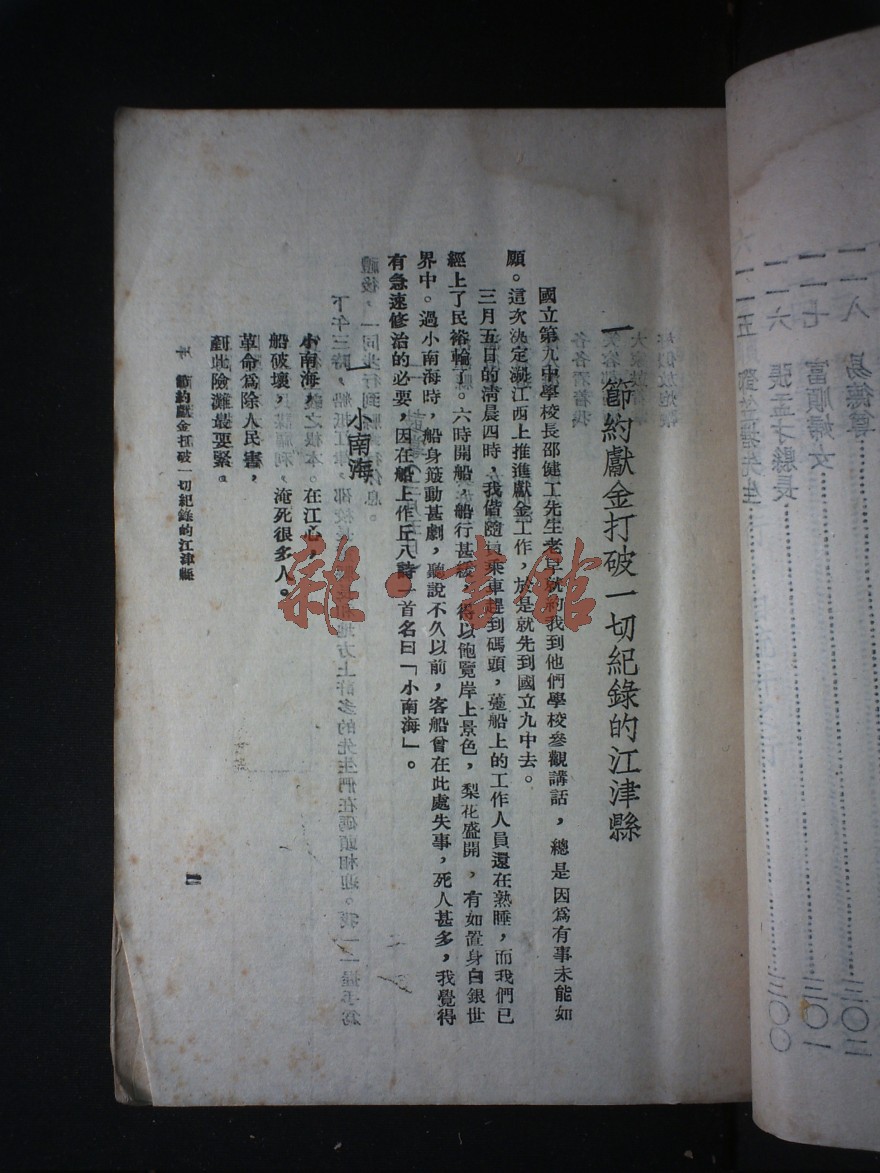 一一五 鄧 先生 三〇〇
一一六 張孟才縣長 三〇一
一一七 富順婦女
一一八 易德尊 三〇二
一 節約獻金打破一切紀錄的江津縣
國立第九中學校長邵健工先生老早就約我到他們學校參觀講話，總是因爲有事未能如
願。這次決定溯江西上推進獻金工作，於是就先到國立九中去。
三月五日的清晨四時，我偕隨員乘車趕到碼頭，躉船上的工作人員還在熟睡，而我們已
經上了民裕輪了。六時開船，船行甚緩，得以飽覽岸上景色，梨花盛開，有如置身白銀世
界中。過小南海時，船身簸動甚劇，聽說不久以前，客船曾在此處失事，死人甚多，我覺得
有急速修治的必要，因在船上作丘八詩一首名曰「小南海」。
小南海
小南海，在江心，
船破壞，淹死很多人。
革命爲除人民害，
剷此險灘最要緊。
節約獻金打破一切紀錄的江津縣
雜·書館